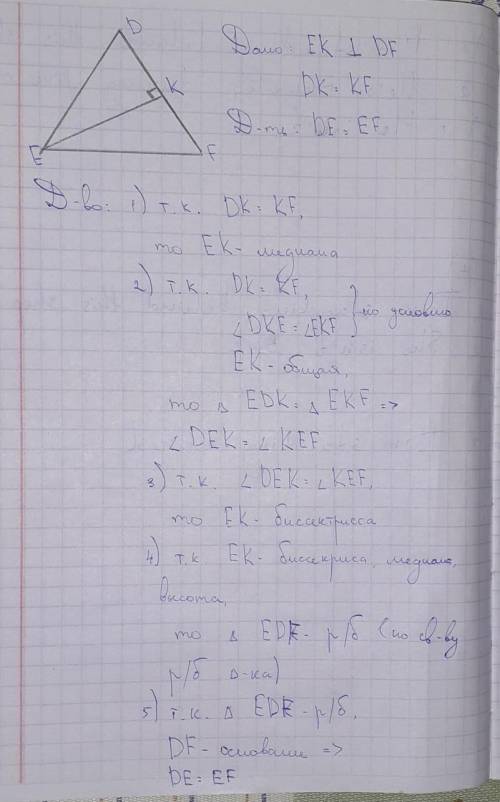 D
K
E
F
Дано: EK ⊥ DF
DK = KF
Д-ть: DE = EF
Д-во: 1) т.к. DK = KF,
то EK - медиана
2) т.к. DK = KF,
∠DKE = ∠EKF } по условию
EK - общая,
то △ EDK = △ EKF =>
∠DEK = ∠KEF
3) т.к. ∠DEK = ∠KEF,
то EK - биссектрисса
4) т.к EK - биссекриса, медиана,
высота,
то △ EDF - р/б (по св-ву
р/б △-ка)
5) т.к. △ EDF - р/б,
DF - основание =>
DE = EF